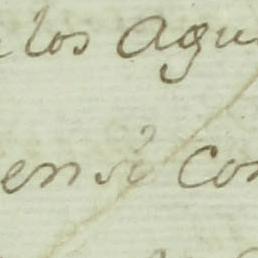 los Agu
en si Con